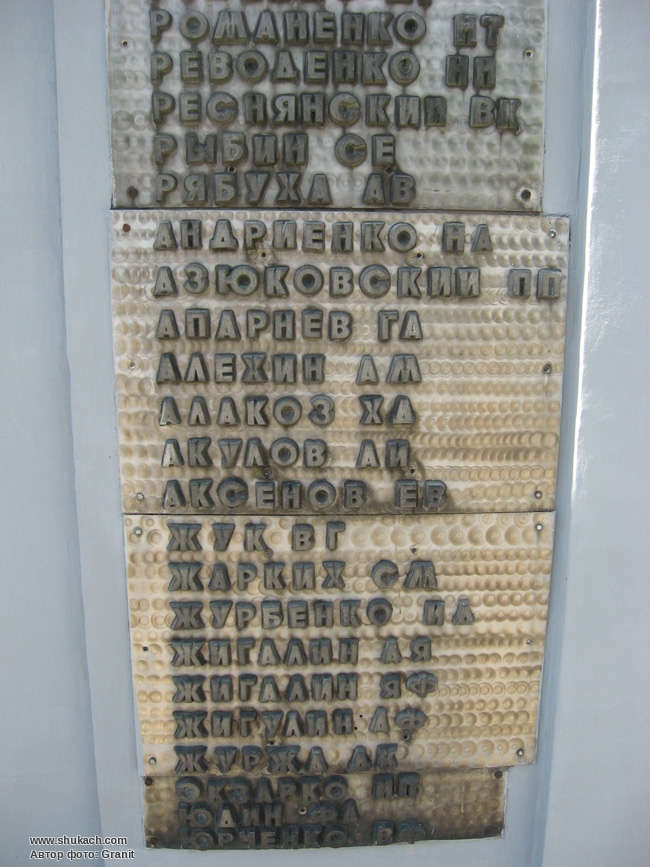 РОМАНЕНКО НТ
РЕВОДЕНКО НП
РЕСНЯНСКИЙ ВК
РЫБИН СЕ
РЯБУХА АВ
АНДРИЕНКО НА
АЗЮКОВСКИЙ ПП
АПАРНЕВ ГА
АЛЕХИН АМ
АЛАКОЗ ХД
АКУЛОВ АИ
АКСЕНОВ ЕВ
ЖУК ВГ
ЖАРКИХ СМ
ЖУРБЕНКО ИД
ЖИГАЛИН АЯ
ЖИГАЛИН ЯФ
ЖИГУЛИН АФ
ЖУРЖА АК
ЭКЗАРКО ИП
ЮДИН ФА
ЮРЧЕНКО
www.shukach.com
Автор фото: Granit